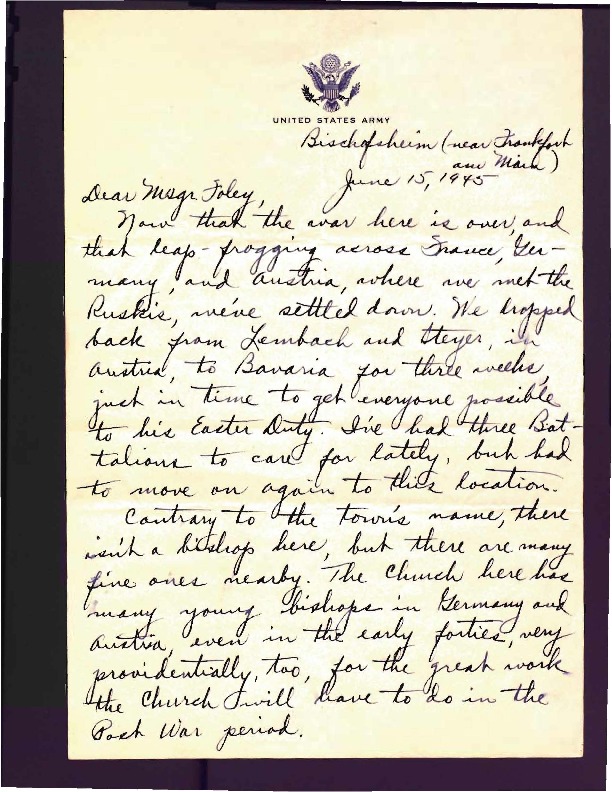 UNITED STATES ARMY
Bischofsheim (near Frankfort
am Main)
June 15, 1945
Dear Msgr. Foley,
Now that the war here is over, and
that leap-frogging across France, Ger-
many, and Austria, where we met the
Ruskis, we've settled down. We dropped
back from Lembach and Steyer, in
Austria, to Bavaria for three weeks,
just in time to get everyone possible
to his Easter Duty. I've had three Bat-
talions to care for lately, but had
to move on again to this location.
Contrary to the town's name, there
isn't a bishop here, but there are many
fine ones nearby. The Church here has
many young bishops in Germany and
Austria, even in the early forties, very
providentially, too, for the great work
the Church will have to do in the
Post War period.